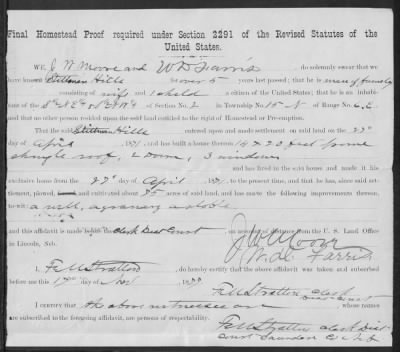 Final Homestead Proof required under Section 2291 of the Revised Statutes of the
United States.
WE, J. W. Moore and W D Farris do solemnly swear that we
have known Stittman Hills for over 5 years last passed; that he is
consisting of wife and 1 child a citizen of the United States; that he is an inhabi-
tant of the of Section No. 2 in Township No. 15 N of Range No. 6 E
and that no other person resided upon the said land entitled to the right of Homestead or Pre-emption.
That the said Stittman Hills entered upon and made settlement on said land on the 27"
day of April 187 , and has built a house thereon 14 x 20 feet
shingle roof, 2 doors, 3 windows
and has lived in the said house and made it his
exclusive home from the 27" day of April 187 , to the present time, and that he has, since said set-
tlement, plowed, and cultivated about acres of said land, and has made the following improvements thereon,
to-wit: a well, a granary a stable
and this affidavit is made before the Clerk Dist Court on account of distance from the U. S. Land Office
in Lincoln, Neb.
J W Moore
W. D. Farris
I, F M Stratton , do hereby certify that the above affidavit was taken and subscribed
before me this day of Nov 18
F M Stratton Clerk
Dist Court
I CERTIFY that the above witnesses are whose names
are subscribed to the foregoing affidavit, are persons of respectability.
F M Stratton Clerk Dist
Court Saunders Co Neb